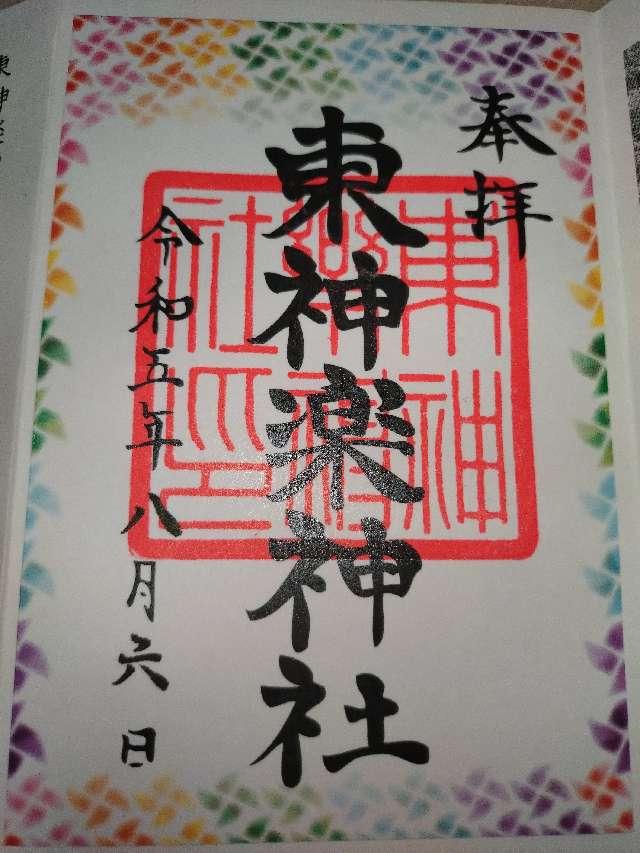 奉拝
東神楽神社
東神楽神社印
令和五年八月六日